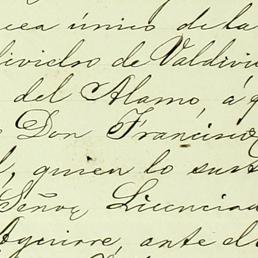 cea único de la
divieloo de Valdivi
del Alamo, á q
Don Francisco
l, quien lo sus
Señor Licenciad
Aguirre, ante el